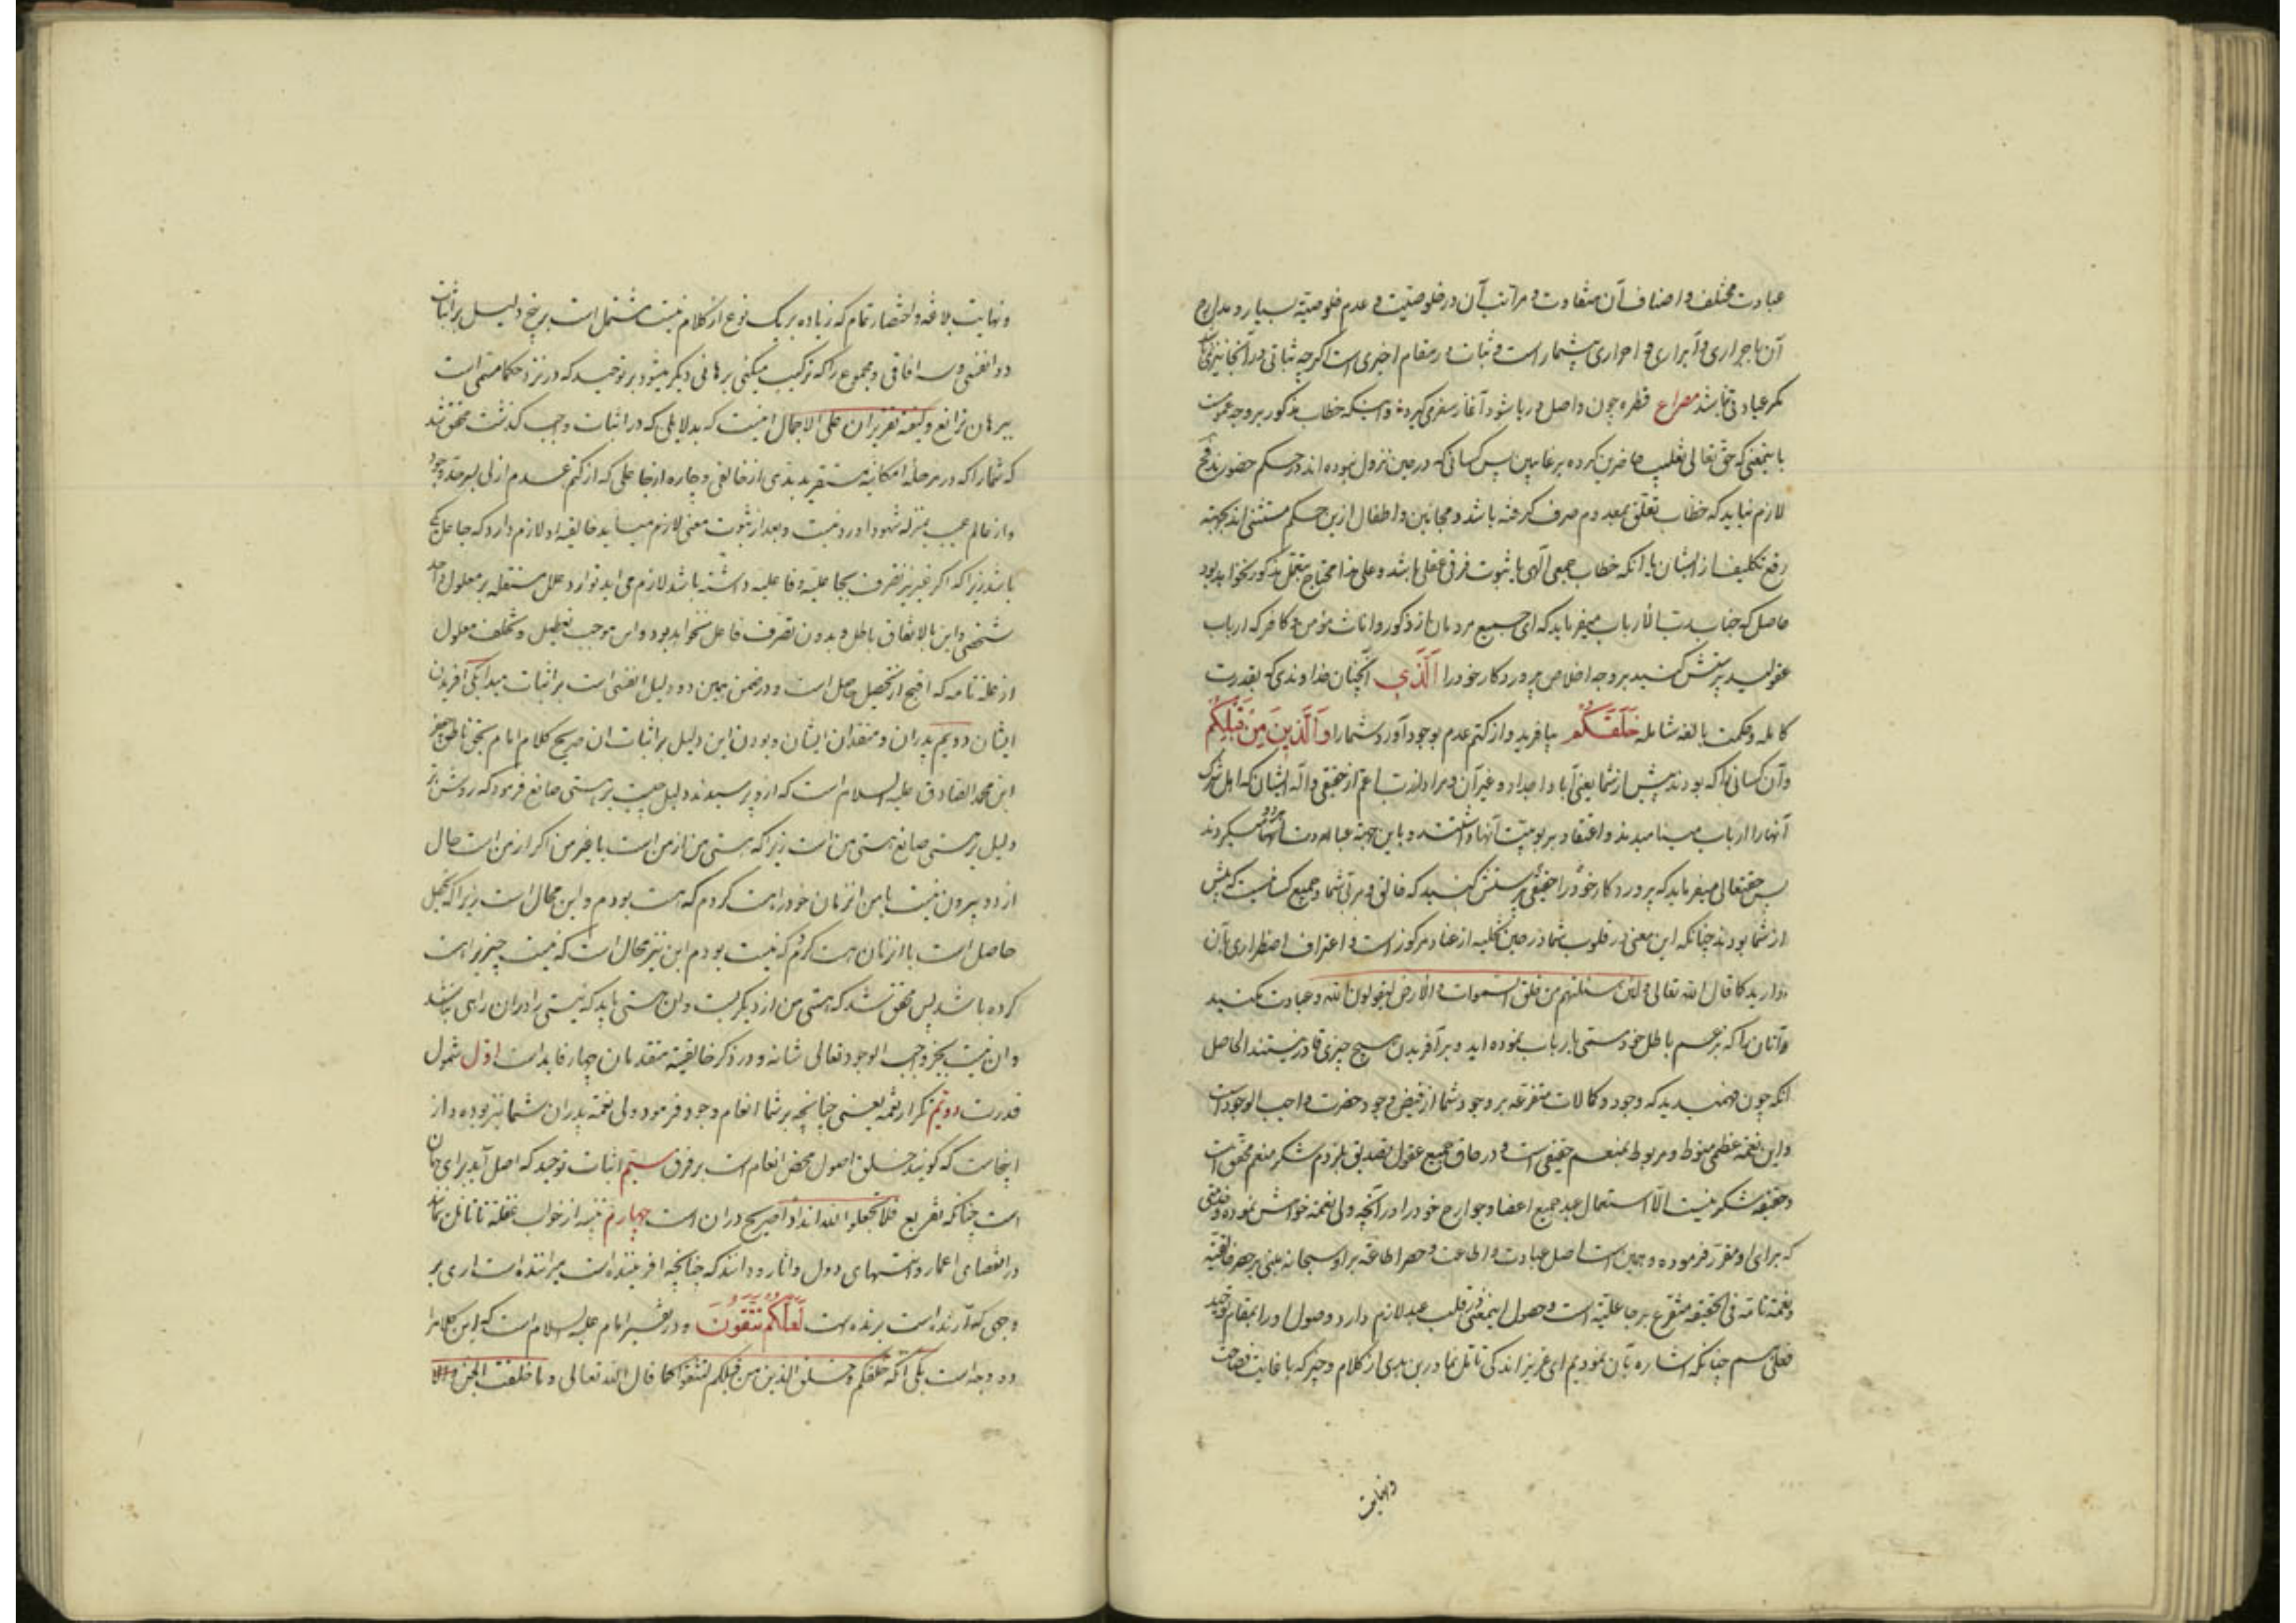 عبادت مختلف و اصناف آن متفاوت و مراتب آن در خلوصیت و عدم خلوصیة بسیار و مدارج
آن با جواری و آبراری و احراری بیشمار است و ثبات در مقام اخیری است اگرچه ثباتی در آنجا نیز
مگر عبادتی باشد مصراع قطره چون واصل دریا شود آغاز سفر می کیرد و اینکه خطاب مذکور بر وجه عموم
باینمعنی که حق تعالی تغلیب حاضرین کرده بر غایبین پس کسانی که در حین نزول نبوده اند در حکم حضورند
لازم نیاید که خطاب تعلق بمعدوم صرف گرفته باشد و مجانین و اطفال ازین حکم مستثنی اند بجهته
رفع تکلیف از ایشان یا آنکه خطاب جمعی آلهی با ثبوت فرق عقلی باشد و علی هذا محتاج بتمحل مذکور نخواهد بود
حاصل که جناب رب الأرباب میفرماید که ای جمیع مردمان از ذکور و اناث مؤمن و کافر که ارباب
عقولید پرستش کنید بر وجه اخلاص پرورد کار خود را اَلَّذِي آنچنان خداوندی که بقدرت
کامله و حکمت بالغه شامله خَلَقَكُم بیافرید و از کتم عدم بوجود آورد شما را وَالَّذِينَ مِن قَبْلِكُم
و آن کسانی را که بودند پیش از شما یعنی آباء و اجداد و غیر آن و مراد از رب اعم از حقیقی و آله ایشان که اهل شرک
آنها را ارباب مینامیدند و اعتقاد بربوبیت آنها داشتند و باین جهة عبادت آنها میکردند
پس حقتعالی میفرماید که پرورد کار خود را حقیقی پرستش کنید که خالق و مربی شما و جمیع کسانیست که پیش
از شما بودند چنانکه این معنی در قلوب شما در حین تخلیه از عناد مرکوز است و اعتراف اضطراری بآن
دارید کما قال الله تعالی و لئن سئلتهم من خلق السموات و الارض لیقولون الله و عبادت مکنید
آنان را که بزعم باطل خود مسمی بارباب نموده اید و بر آفریدن هیچ چیزی قادر نیستند الحاصل
آنکه چون فهمیدید که وجود و کمالات متفرعه بر وجود شما از فیض وجود حضرت واجب الوجود است
و این نعمة عظمی منوط و مربوط بمنعم حقیقی است و در حاق جمیع عقول تصدیق بلزوم شکر منعم محقق است
و حقیقه شکر نیست الّا استعمال عبد جمیع اعضا و جوارح خود را در آنچه ولی نعمة خواهش نموده
که برای او مقرر فرموده و همین است اصل عبادت و اطاعت و حصر اطاعة بر او سبحانه مبنی بر حصر خالقیة
و نعمة تامة فی الحقیقه متفرع بر جاعلیة است و حصول اینمعنی در قلب عبد لازم دارد وصول او را بمقام توحید
فعلی هم چنانکه اشاره بآن نمودیم ای عزیز اندکی تامّل نما درین هدی از کلام وجیز که با غایت فصاحت
و نهایت
و نهایت بلاغة و اختصار تمام که زیاده بر یک نوع از کلام نیست مشتمل است بر پنج دلیل بر اثبات
دو انفسی و سه افاقی و مجموع را که ترکیب میکنی برهانی دیگر میشود بر توحید که در نزد حکما مسمی است
ببرهان ترانع و کیفیة تقریر آن علی الاجمال اینست که بدلایلی که در اثبات واجب گذشت محقق شد
که شما را که در مرحلهٔ امکانیة مستقرید بدی از خالقی و چاره از جاعلی که از کتم عدم ازلی بسرحد وجود
و از عالم غیب بمنزله شهود آورد نیست و بعد از ثبوت معنی لازم میآید خالقیه او لازم دارد که جاعل یکی
باشد زیرا که اگر غیر نیز تصرف بجاعلیة و فاعلیه داشته باشد لازم می اید توارد علل مستقله بر معلول واحد
شخصی و این بالاتفاق باطل و بدون تصرف فاعل نخواهد بود و این موجب تعطیل و تخلف معلول
از علة تامه که اقبح از تحصیل حاصل است و در ضمن همین دو دلیل انفسی است بر اثبات مبدا یکی افریدن
ایشان دویم پدران و متقدمان ایشان و بودن این دلیل بر اثبات آن صریح کلام امام بحق ناطق جعفر
ابن محمد الصادق علیه السلام است که از و پرسیدند دلیل چیست بر هستی صانع فرمود که روشن تر
دلیل بر هستی صانع هستی من است زیرا که هستی من از من است یا غیر من اگر از من است حال
از دو بیرون نیست یا من از زمان خود را هست کردم که هست بودم و این محال است زیرا که تحصیل
حاصل است یا از زمان هست کردم که نیست بودم این نیز محال است که نیست چیزی را هست
کرده باشد پس محقق شد که هستی من از دیگریست و آن هستی باید که نیستی را در آن راهی نباشد
و ان نیست بجز واجب الوجود تعالی شانه و در ذکر خالقیة متقدمان چهار فایده است اوّل شمول
قدرت دویّم تکرار نعمة یعنی چنانچه بر شما انعام وجود فرمود ولی نعمة پدران شما نیز بوده و از
اینجاست که گویند خلق اصول محض انعام است بر فروع سیّم اثبات توحید که اصل آیه برای همان
است چنانکه تفریع فلا تجعلوا لله اندادا صریح در ان است چهارم تنبیه از خواب غفلة تا تامّل نمایند
در انقضای اعمار و انتهای دول و اثار و دانند که چنانچه افریننده است میراننده است اری بر
وجهی که آرنده است برنده است لَعَلَّكُمْ تَتَّقُونَ و در تفسیر امام علیه السلام است که این کلام را
دو وجه است یکی آنکه خلقکم و خلق الذین من قبلکم لتتقوا کما قال الله تعالی و ما خلقت الجن و الا